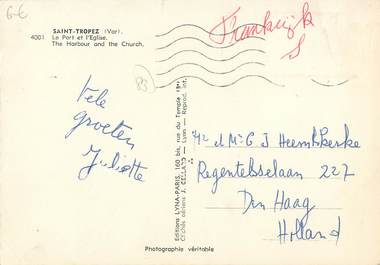 6-E
SAINT-TROPEZ (Var).
4001 Le Port et l'Eglise.
The Harbour and the Church.
Frankrijk
S
83
Vele
groeten
Juliette
Editions LYNA-PARIS, rue du Temple
Clichés aériens J. CELLARD - Lyon - Reprod. int.
J Heemskerke
Regentesselaan 227
Den Haag
Holland
Photographie véritable